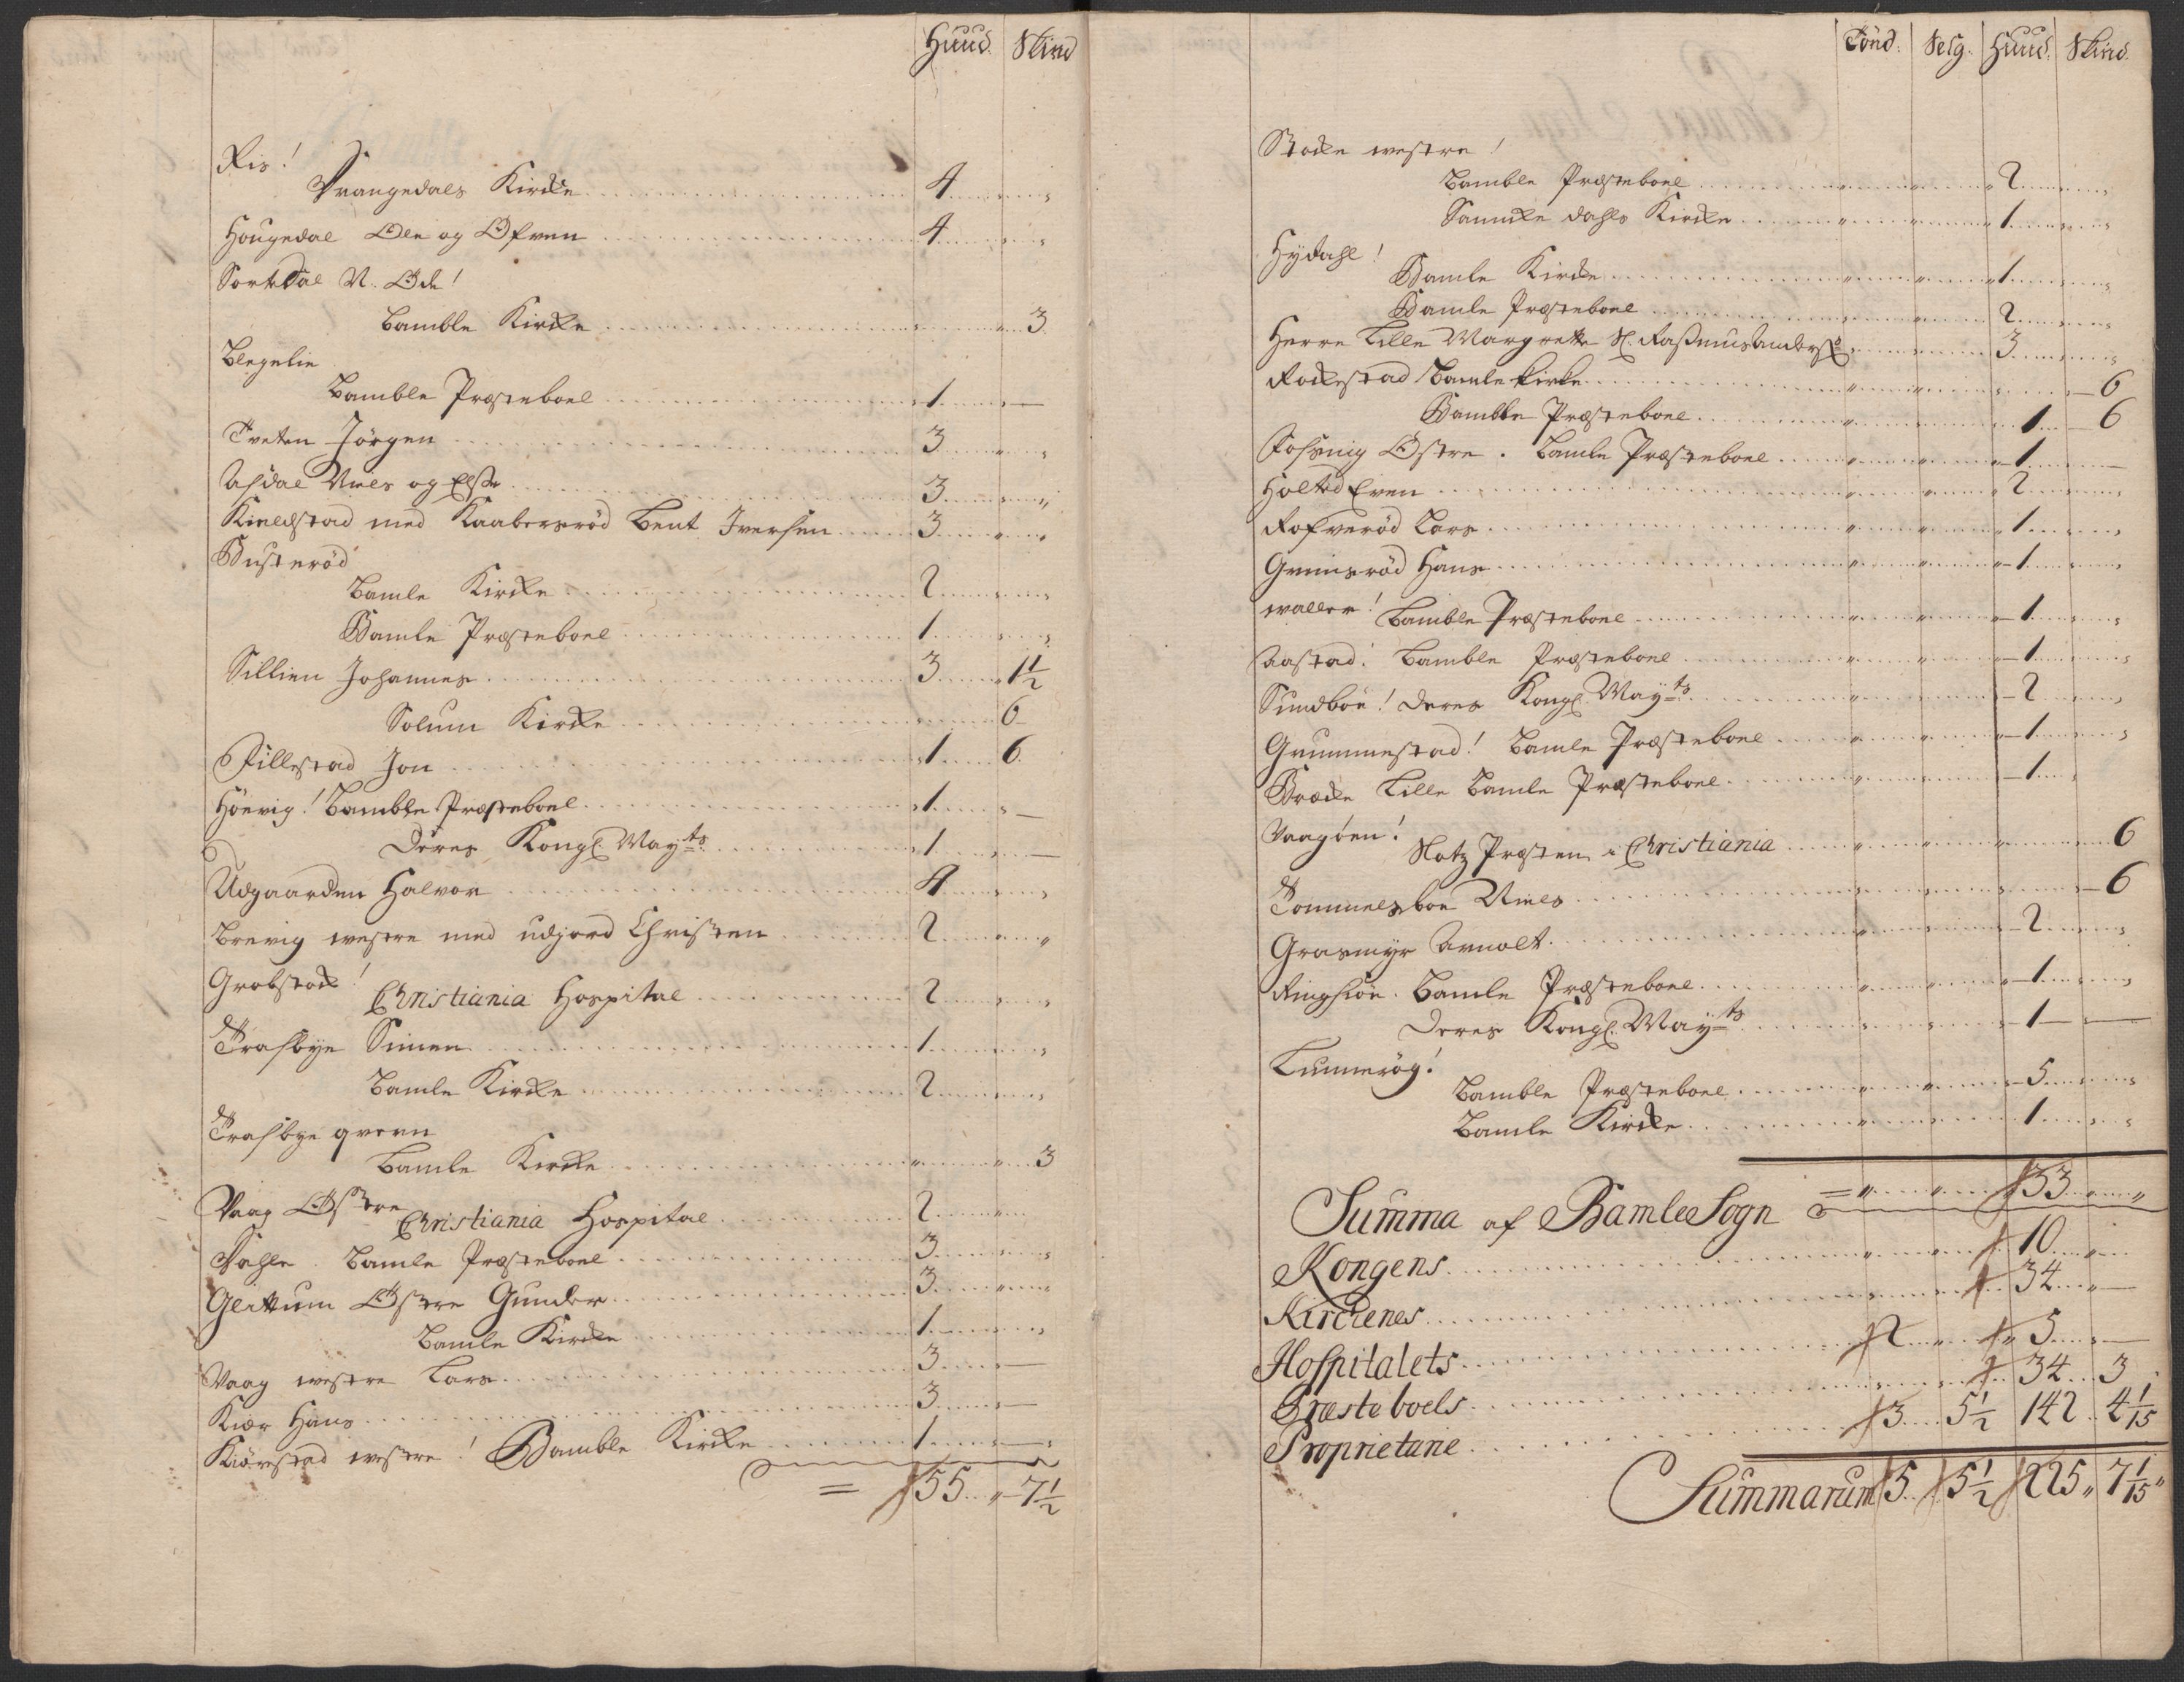 Huud. Skind
Ris!
Drangedals Kircke 4 " "
Hougedal Ole og Ofven 4 " "
Sortedal N. Öde!
Bamble Kircke " " 3
Blegelie
Bamble Præsteboel 1 —
Tveten Jörgen 3 " "
Asdal Niels og Else 3 " "
Kieelstad med Kaabersröd Bent Iversen 3 " "
Busteröd
Bamle Kircke 2 " "
Bamle Præsteboel 1 " "
Sillien Johannes 3 1½
Solum Kircke 6
Fillestad Jon 1 6
Höevig! Bamble Præsteboel 1 —
Deres Kongl. Mayts 1 —
Udgaarden Halvor 4 " "
Brevig westre med udjord Christen 2 " "
Grobstock!
Christiania Hospital 2 " "
Trasbye Simen 1 " "
Bamle Kircke 2 " "
Trasbye qvern
Bamle Kircke " " 3
Vaag Östre
Christiania Hospital 2 " "
Dahle Bamle Præsteboel 3 " "
Glittum Östre Gunder 3 " "
Bamle Kircke 1 " "
Vaag westre Lars 3 —
Kiær Hans 3 —
Kiörstad westre! Bamble Kircke 1 —
= 55 " 7½
Tönd. Selg. Huud. Skind.
Stocke westre!
Bamble Præsteboel " " 2 "
Sannicke dahls Kircke " " 1 "
Hydahl!
Bamle Kircke " " 1 "
Bamle Præsteboel " " 2 "
Herre Lille Margrette Sl. Rasmus Anders 3 "
Rockestad Bamle kirke " " 6
Bamble Præsteboel " " 1 6
FosSnig Östre. Bamle Præsteboel " " 1 —
Holted Even " " 2 "
Rosveröd Lars " " 1 "
Grimsröd Hans " " 1 "
waller! Bamble Præsteboel " " 1 "
Aastad! Bamble Præsteboel " " 1 "
Sundboe! Deres Kongl. Mayts " " 2 "
Grummestad! Bamle Præsteboel " " 1 "
Bræcke Lille Bamle Præsteboel " " 1 "
Vaagöen!
Slotz Præsten i Christiania " " " 6
Tommelsboe Niels " " " 6
Grasmyr Arnolt " " 2 "
Ringsiöe. Bamle Præsteboel " " 1 "
Deres Kongl. Mayts " " 1 —
Lunnerög!
Bamble Præsteboel " " 5 "
Bamle Kircke " " 1 "
Summa af BamleSogn = " " 133 "
Kongens " " 10 "
Kirckenes " " 34 " —
Hospitalets 2 " " 5 " —
Præsteboels " " 34 3
Proprietarie 3 5½ 142 4 1/15
Summarum 5 5½ 225 " 7 1/15 "